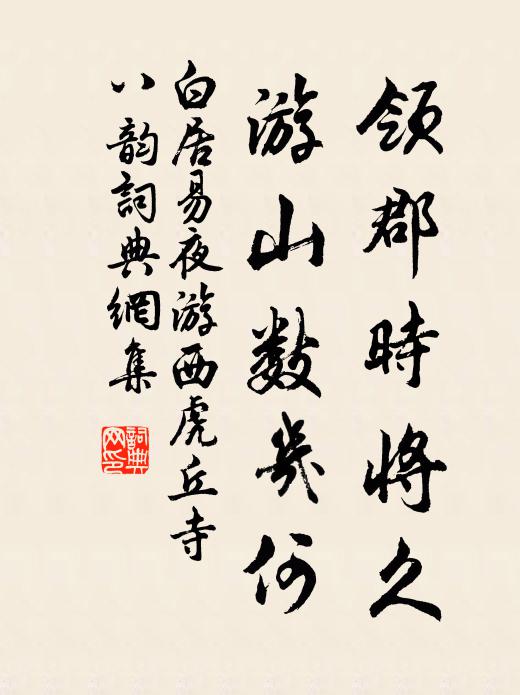 領郡時將久
游山數幾何
白居易夜游西虎丘寺
八韵詞典網集
詞典
网印